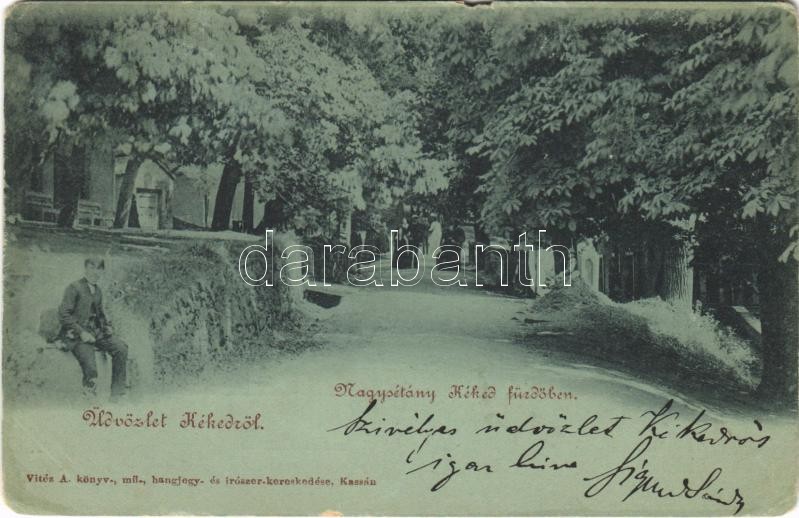 darabanth
Nagysétány Kéked fürdőben.
Üdvözlet Kékedről.
Szivélyes üdvözlet Kékedről
igaz híve
Vitéz A. könyv-, mű-, hangjegy- és irószer-kereskedése, Kassán